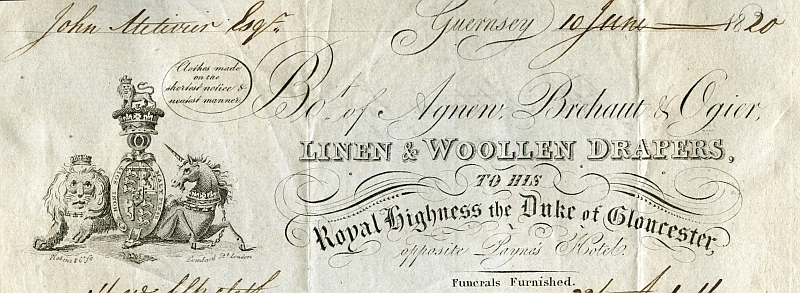 John Metivier Esqr.
Guernsey 10 June 1820
Clothes made
on the
shortest notice &
neatest manner
Bot. of Agnew, Brehaut & Ogier,
LINEN & WOOLLEN DRAPERS,
TO HIS
Royal Highness the Duke of Gloucester,
opposite Payne's Hotel.
Lombard St. London
Funerals Furnished.